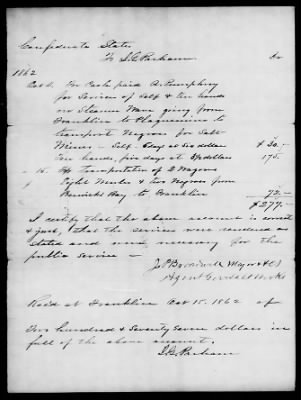 Confederate States
To S. G. Parham Dr
1862
Oct 8. For Cash paid A. Pumphry
for Services of Self & ten hands
on Steamer going from
Franklin to Plaquemine to
transport Negroes for Salt
Mines - Self - 5 days at six dollars $30.-
Ten hands, five days at 3½ dollars 175.
" 15. " Transportation of 2 Wagons
Eight Mules & two Negroes from
Berwicks Bay to Franklin 72.-
$277.-
I certify that the above account is correct
& just, that the services were rendered as
stated and were necessary for the
public service -
Major & C.S.
Agent
Recd at Franklin Oct 15. 1862 of
Two hundred & Seventy Seven dollars in
full of the above account.
S. G. Parham